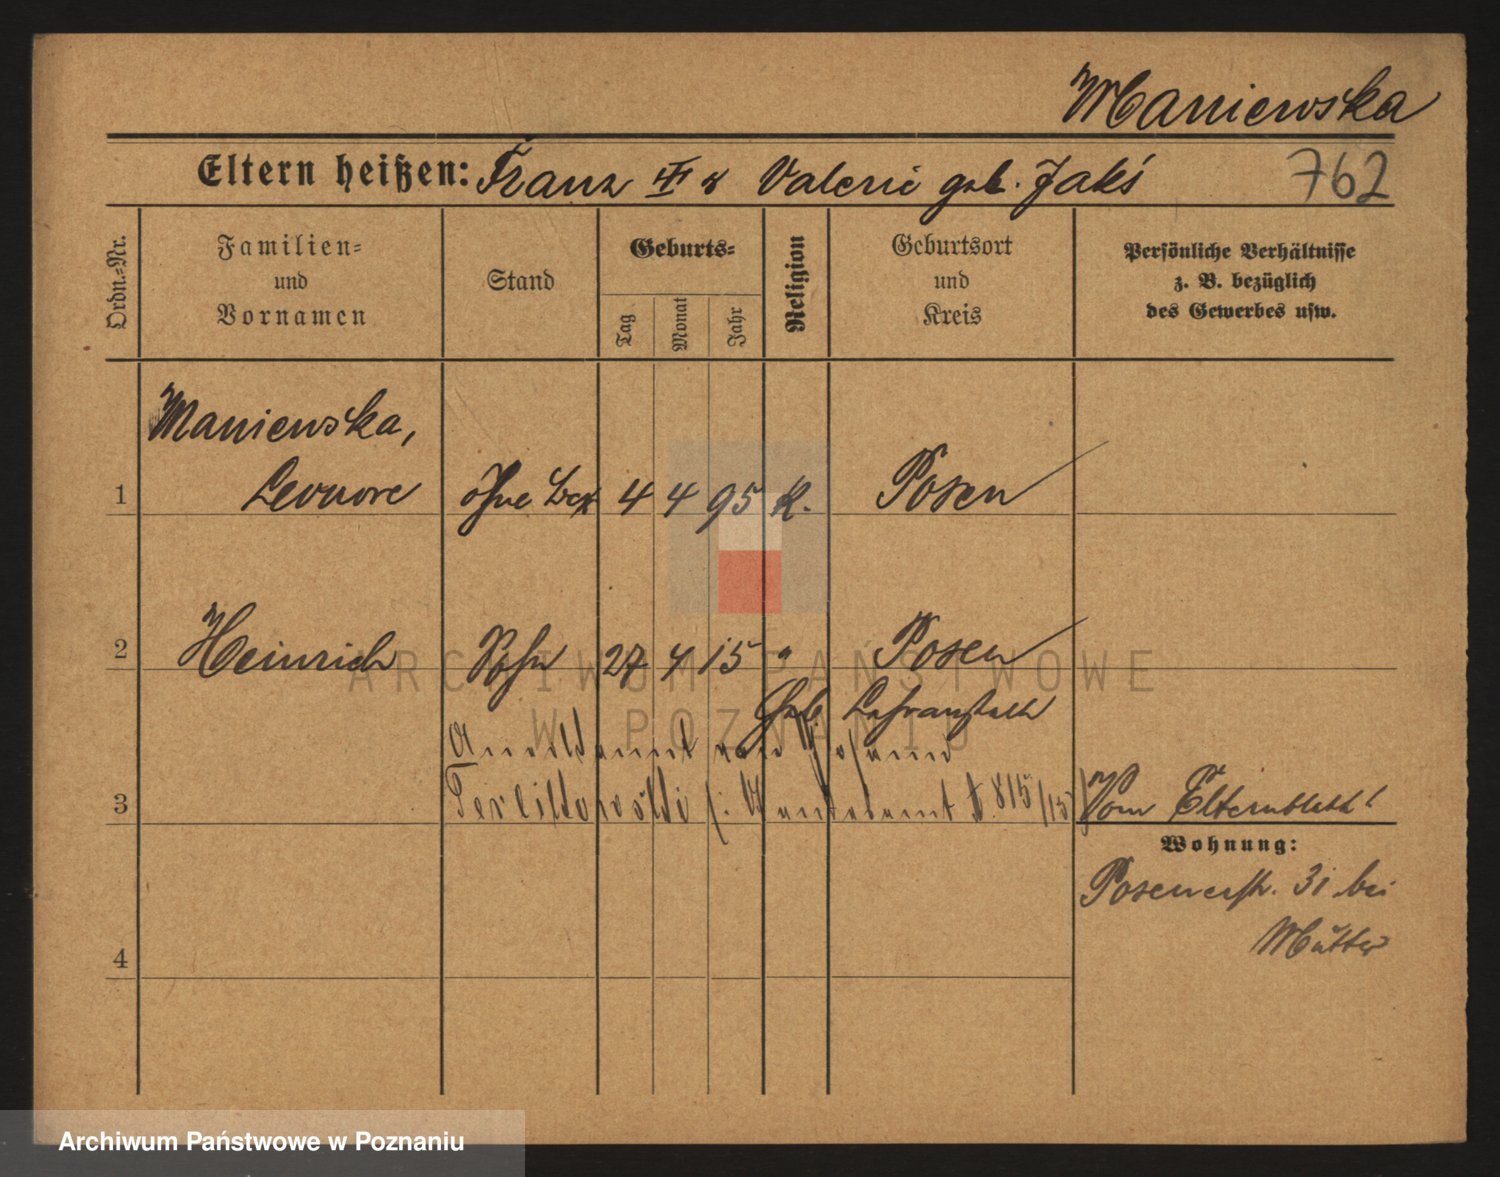 Maniewska
Eltern heißen: Franz u Valerie geb. Jakś
762
Ordn.-Nr.
Familien-
und
Vornamen
Stand
Geburts-
Tag
Monat
Jahr
Religion
Geburtsort
und
Kreis
Persönliche Verhältnisse
z. B. bezüglich
des Gewerbes usw.
Maniewska,
1 Leonore ohne 4 4 95 K. Posen
2 Heinrich Sohn 27 4 15 " Posen
Geb.
3 815/15 Vom
Wohnung:
Posenerstr. 31 bei
Mutter
4
ARCHIWUM PAŃSTWOWE
W POZNANIU
Archiwum Państwowe w Poznaniu